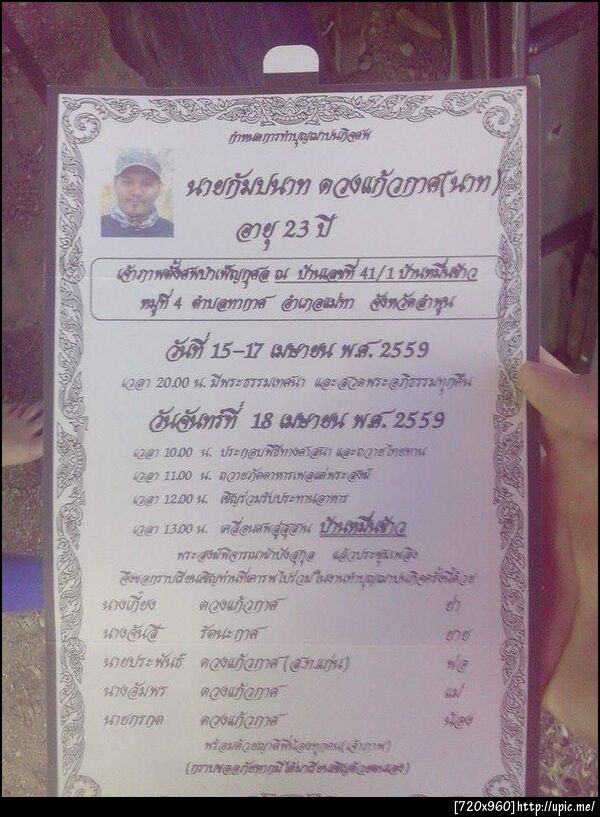 กำหนดการทำบุญฌาปนกิจศพ
นายกัมปนาท ดวงแก้วกาศ(นาท)
อายุ 23 ปี
เจ้าภาพตั้งศพบำเพ็ญกุศล ณ บ้านเลขที่ 41/1 บ้านหมื่นข้าว
หมู่ที่ 4 ตำบลทากาศ อำเภอแม่ทา จังหวัดลำพูน
วันที่ 15-17 เมษายน พ.ศ. 2559
เวลา 20.00 น. มีพระธรรมเทศนา และสวดพระอภิธรรมทุกคืน
วันจันทร์ที่ 18 เมษายน พ.ศ. 2559
เวลา 10.00 น. ประกอบพิธีทางศาสนา และถวายไทยทาน
เวลา 11.00 น. ถวายภัตตาหารเพลแด่พระสงฆ์
เวลา 12.00 น. เชิญร่วมรับประทานอาหาร
เวลา 13.00 น. เคลื่อนศพสู่สุสาน บ้านหมื่นข้าว
พระสงฆ์พิจารณาผ้าบังสุกุล แล้วประชุมเพลิง
จึงขอกราบเรียนเชิญท่านที่เคารพ ไปร่วมในงานทำบุญฌาปนกิจครั้งนี้ด้วย
นางเกี๋ยง ดวงแก้วกาศ ย่า
นางจันสี รัตนะกาศ ยาย
นายประพันธ์ ดวงแก้วกาศ (ส.ท.แก่น) พ่อ
นางอัมพร ดวงแก้วกาศ แม่
นายกรกด ดวงแก้วกาศ น้อง
พร้อมด้วยญาติพี่น้องทุกคน(เจ้าภาพ)
(กราบขออภัยหากมิได้มาเรียนเชิญด้วยตนเอง)
[720x960] http://upic.me/